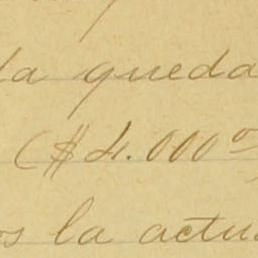 la queda
($4.000º
os la actua